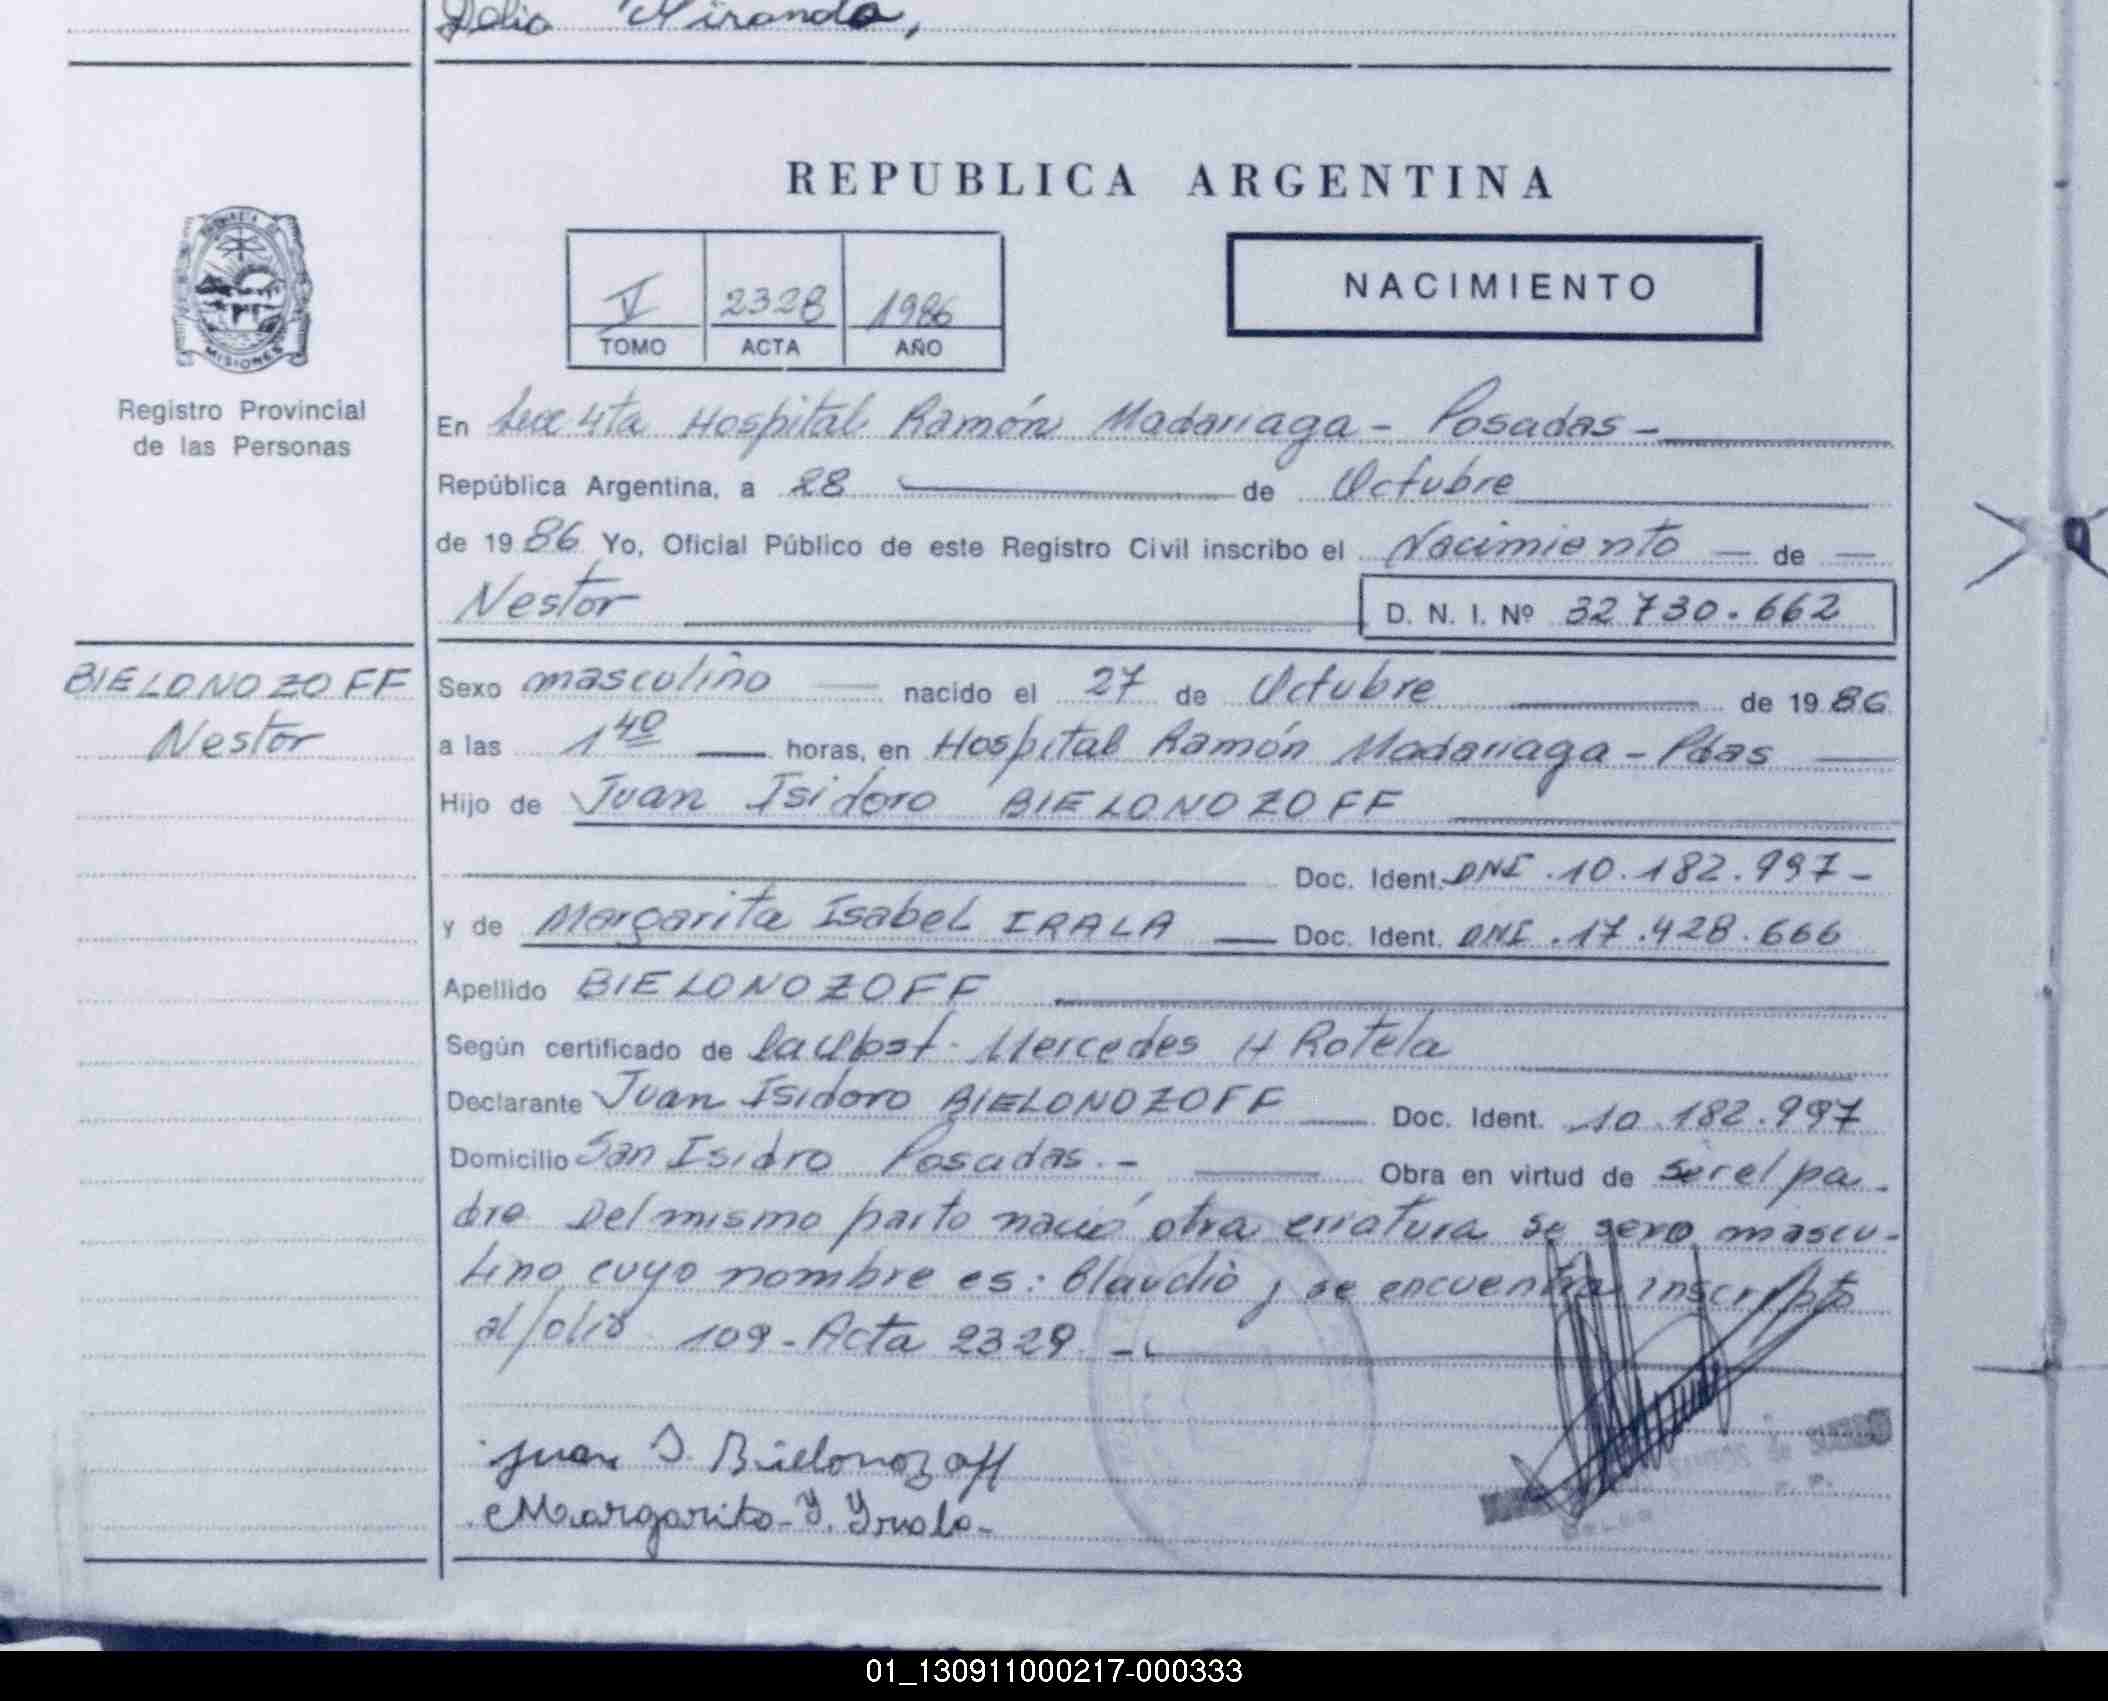 Delia Miranda,
REPUBLICA ARGENTINA
V 2328 1986
TOMO ACTA AÑO
NACIMIENTO
MISIONES
Registro Provincial
de las Personas
En Secc 4ta Hospital Ramón Madariaga - Posadas -
República Argentina, a 28 de Octubre
de 1986 Yo, Oficial Público de este Registro Civil inscribo el Nacimiento de
Nestor D. N. I. Nº 32730.662
BIELONOZOFF
Nestor
Sexo masculino nacido el 27 de Octubre de 1986
a las 1 40 horas, en Hospital Ramón Madariaga - Pdas
Hijo de Juan Isidoro BIELONOZOFF
Doc. Ident. DNI.10.182.997-
y de Margarita Isabel IRALA Doc. Ident. DNI.17.428.666
Apellido BIELONOZOFF
Según certificado de la Obst. Mercedes H Rotela
Declarante Juan Isidoro BIELONOZOFF Doc. Ident. 10.182.997
Domicilio San Isidro Posadas.- Obra en virtud de ser el pa-
dre Del mismo parto nació otra criatura se sexo mascu-
lino cuyo nombre es: Claudio, se encuentra inscripto
al folio 109 - Acta 2329 -
Juan I. Bielonozoff
Margarita I. Irala-
01_130911000217-000333